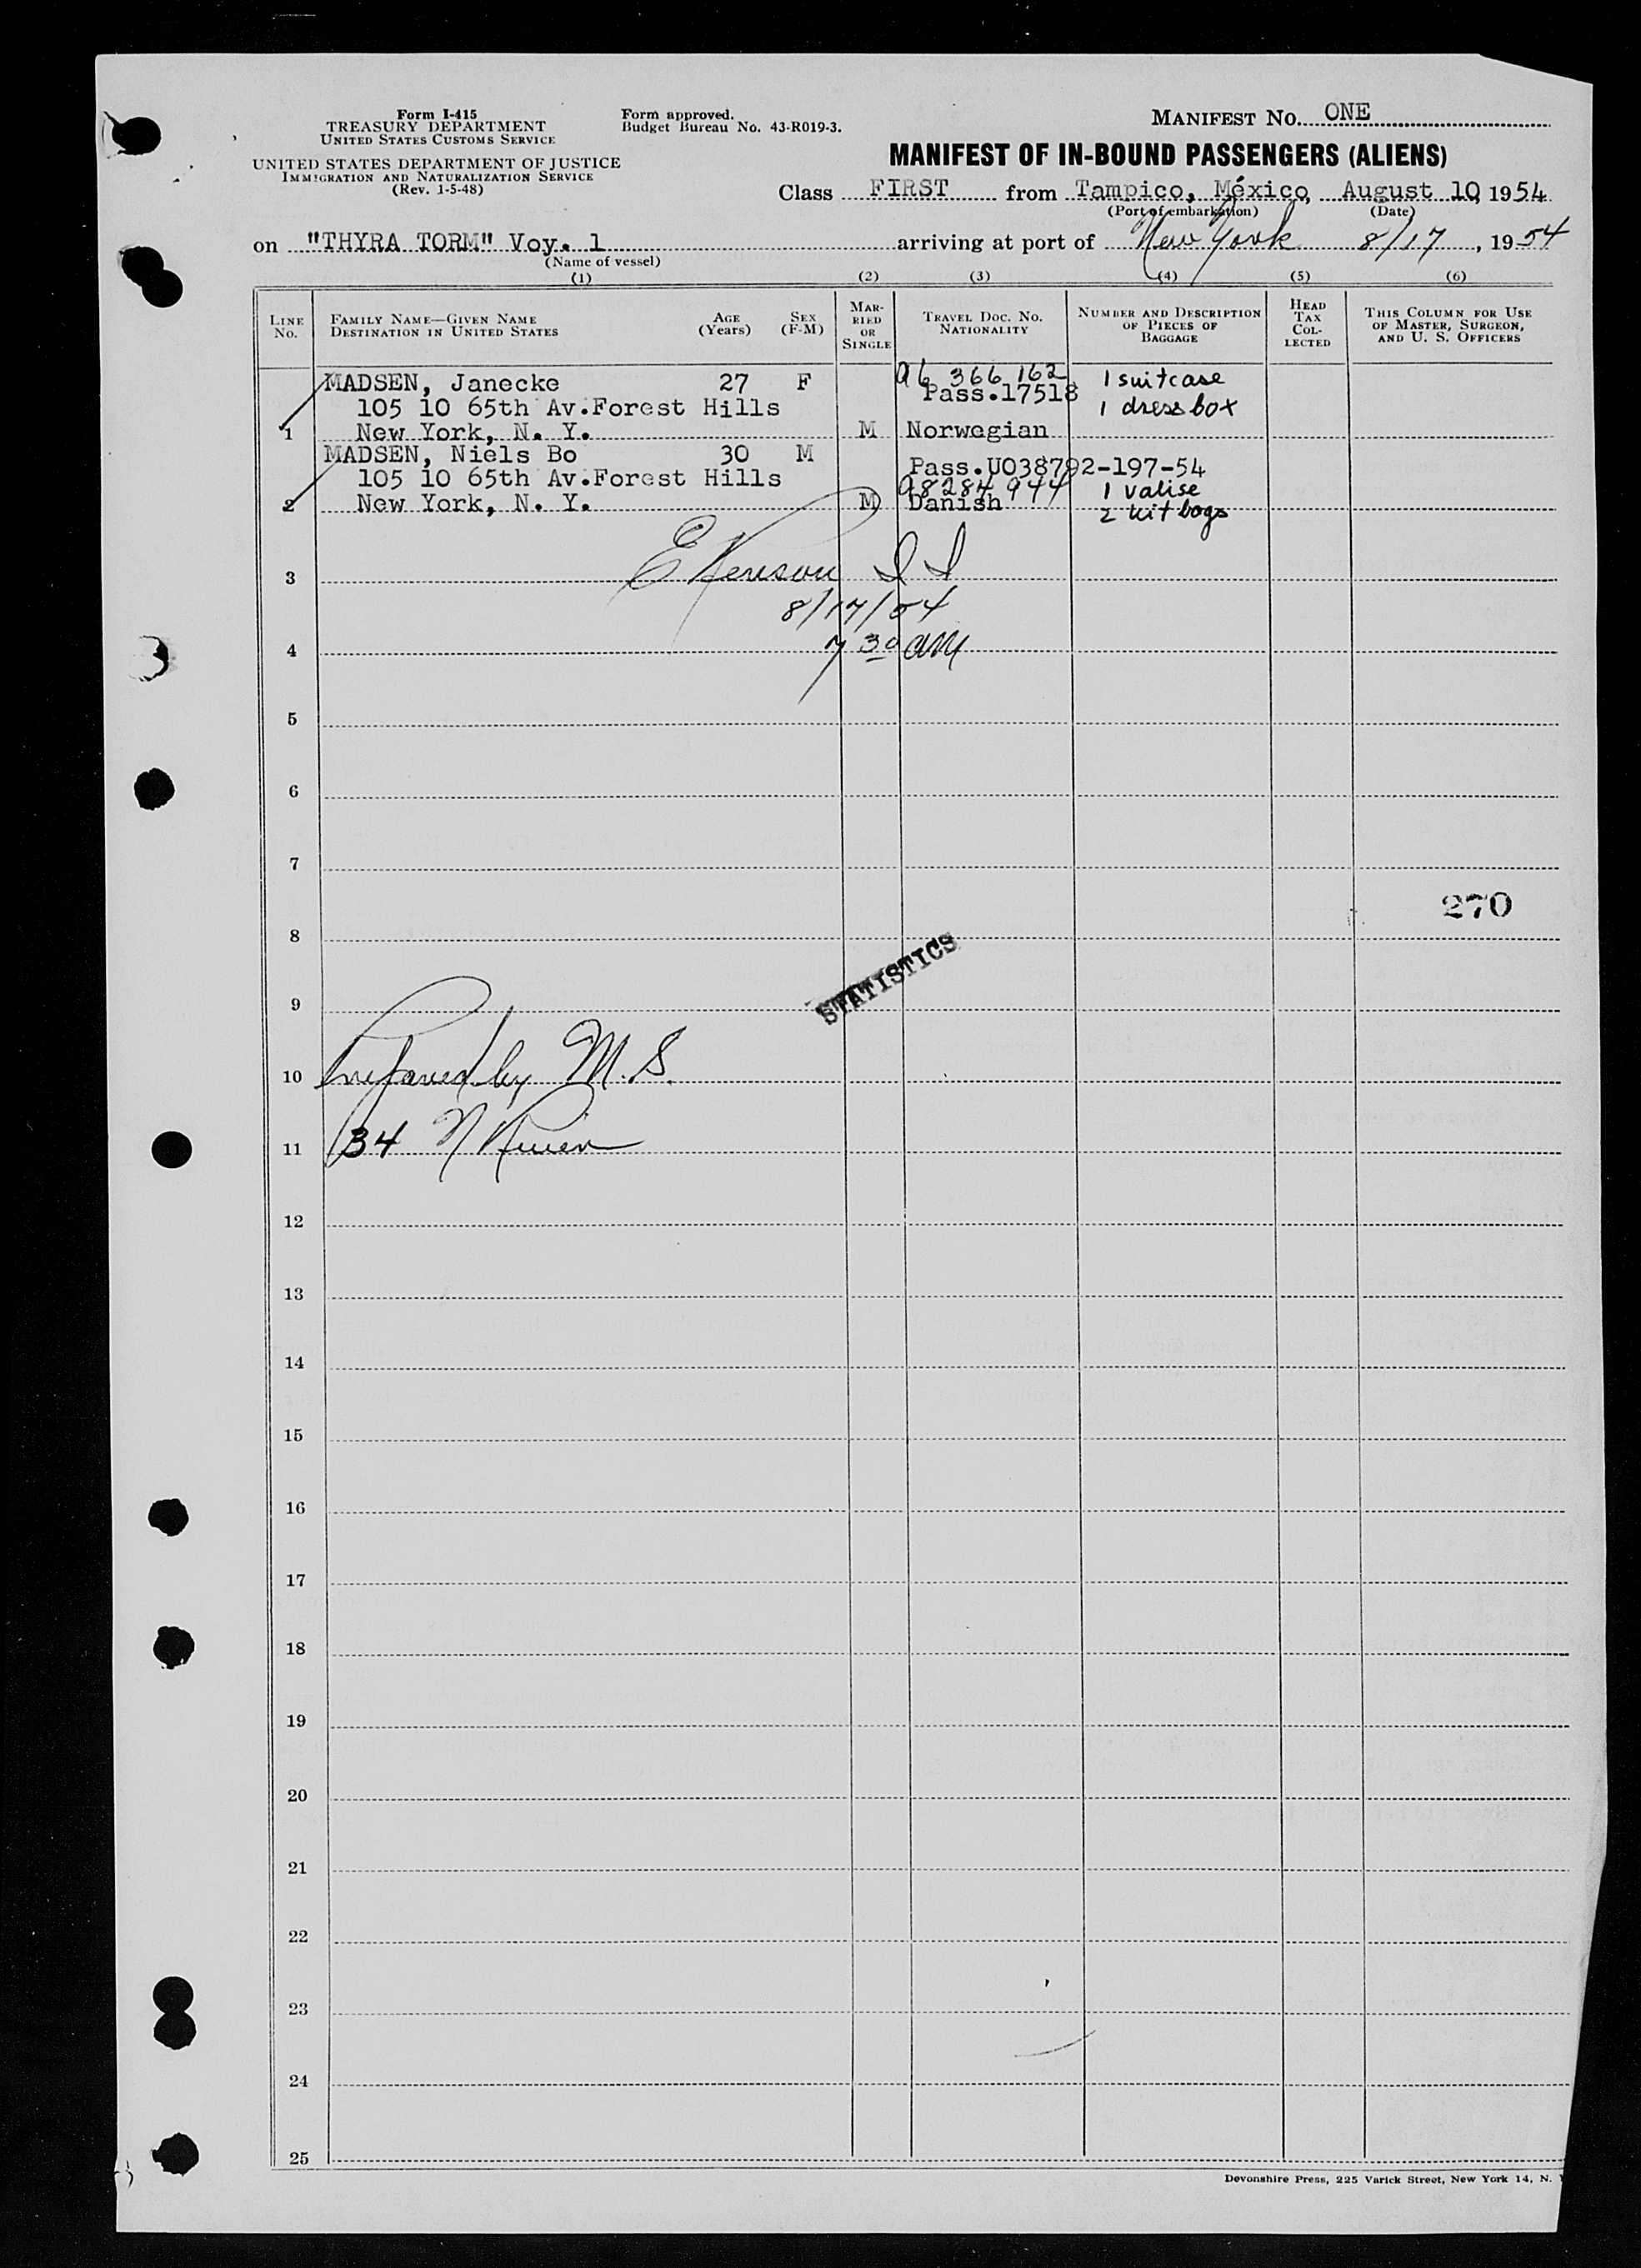 Form I-415
TREASURY DEPARTMENT
UNITED STATES CUSTOMS SERVICE
UNITED STATES DEPARTMENT OF JUSTICE
IMMIGRATION AND NATURALIZATION SERVICE
(Rev. 1-5-48)
Form approved.
Budget Bureau No. 43-R019-3.
MANIFEST NO. ONE
MANIFEST OF IN-BOUND PASSENGERS (ALIENS)
Class FIRST from Tampico, México, August 10, 1954
(Port of embarkation) (Date)
on "THYRA TORM" Voy. 1 arriving at port of New York 8/17, 1954
(Name of vessel)
(1) (2) (3) (4) (5) (6)
LINE NO.
FAMILY NAME—GIVEN NAME
DESTINATION IN UNITED STATES
AGE (Years)
SEX (F-M)
MARRIED OR SINGLE
TRAVEL DOC. NO.
NATIONALITY
NUMBER AND DESCRIPTION OF PIECES OF BAGGAGE
HEAD TAX COLLECTED
THIS COLUMN FOR USE OF MASTER, SURGEON, AND U. S. OFFICERS
MADSEN, Janecke 27 F A6 366 162 1 suitcase
105 10 65th Av.Forest Hills Pass.17518 1 dress box
1 New York, N. Y. M Norwegian
MADSEN, Niels Bo 30 M Pass.U038792-197-54
105 10 65th Av.Forest Hills A8284944 1 valise
2 New York, N. Y. M Danish 2 kit bags
3
8/17/54
4 7 30 AM
5
6
7
270
8
STATISTICS
9
10 Prepared by M. S.
11 34 N River
12
13
14
15
16
17
18
19
20
21
22
23
24
25
Devonshire Press, 225 Varick Street, New York 14, N.